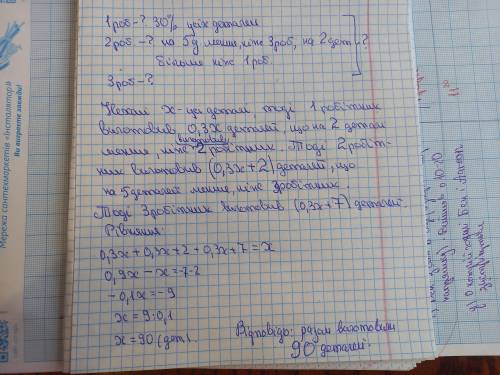 1роб-? 30% усіх деталей
2роб.-? на 5д менше, ніже 3роб, на 2дет ?
більше ніже 1роб.
3роб-?
Нехай х-це детал, тоді 1 робітник
виготовив 0,3х деталей, що на 2 детал
виготовив
менше, ніже 2робітник. Тоді 2робіт-
ник виготовив (0,3х+2) деталей, що
на 5деталей менше, ніже 3робітник.
Тоді 3робітник виготовив (0,3х+7) деталей.
Рівняння:
0,3х+0,3х+2+0,3х+7=х
0,9х-х=-7-2
-0,1х=-9
х=9:0,1
х=90(дет).
Відповідь: разом виготовили
90 деталей.
Мережа сантехмаркетів «Інсталятор»
Ви варите завжди!
11